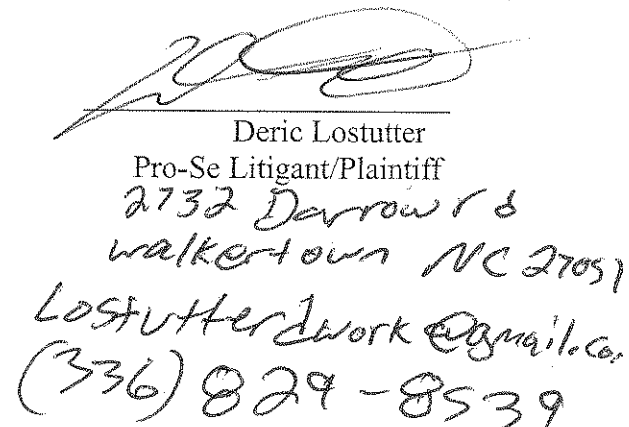 Deric Lostutter
Pro-Se Litigant/Plaintiff
2732 Darrow rd
walkertown NC 27051
Lostutterdwork@gmail.co
(336) 829-8539